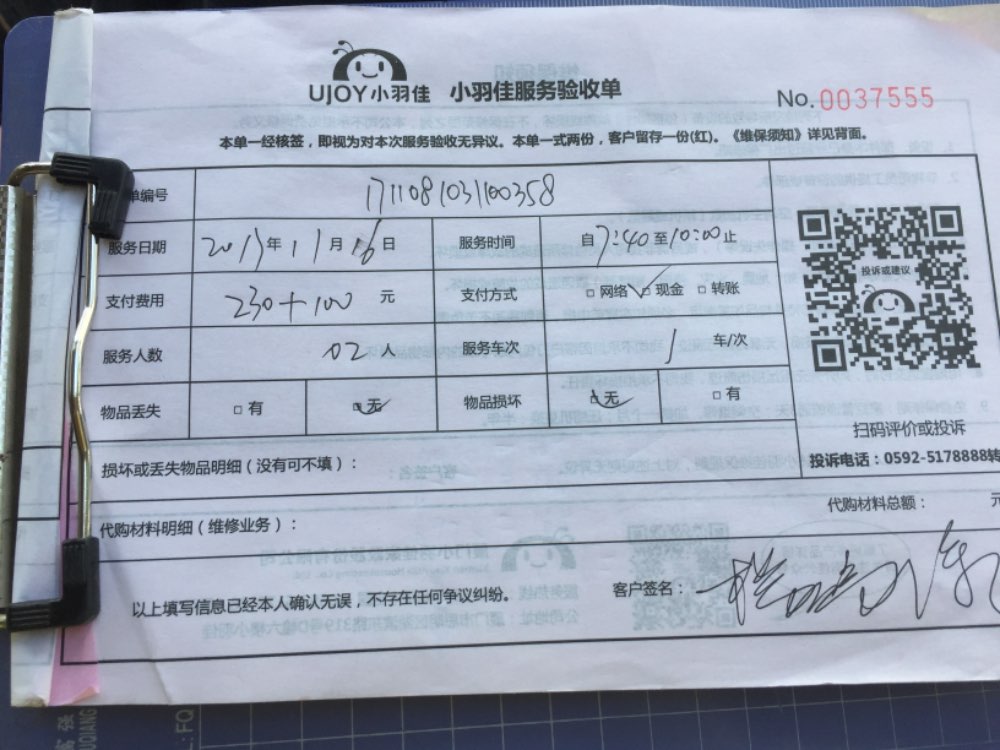 UJOY小羽佳 小羽佳服务验收单
No.0037555
本单一经核签，即视为对本次服务验收无异议。本单一式两份，客户留存一份(红)。《维保须知》详见背面。
单编号 171108103100358
服务日期 2017年11月16日 服务时间 自7:40至10:00止
投诉或建议
支付费用 230+100 元 支付方式 □网络 ☑现金 □转账
服务人数 02人 服务车次 1 车/次
物品丢失 □有 ☑无 物品损坏 ☑无 □有
扫码评价或投诉
损坏或丢失物品明细（没有可不填）：
投诉电话：0592-5178888转
代购材料明细（维修业务）：
代购材料总额： 元
以上填写信息已经本人确认无误，不存在任何争议纠纷。
客户签名：